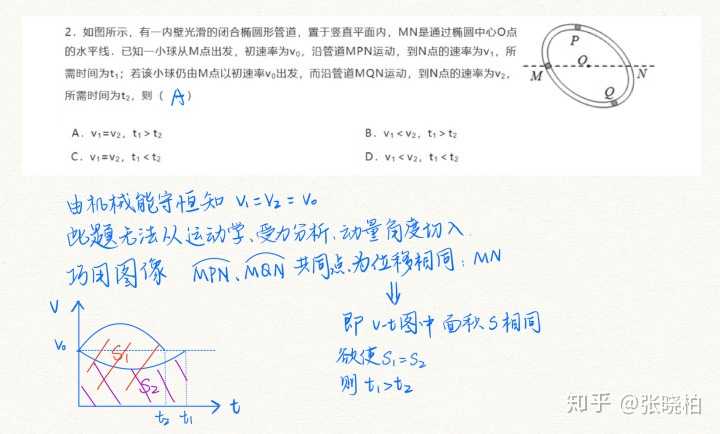 2. 如图所示，有一内壁光滑的闭合椭圆形管道，置于竖直平面内，MN是通过椭圆中心O点
的水平线. 已知一小球从M点出发，初速率为v₀，沿管道MPN运动，到N点的速率为v₁，所
需时间为t₁；若该小球仍由M点以初速率v₀出发，而沿管道MQN运动，到N点的速率为v₂，
所需时间为t₂，则（ A ）
P
M O N
Q
A. v₁=v₂，t₁＞t₂ B. v₁＜v₂，t₁＞t₂
C. v₁=v₂，t₁＜t₂ D. v₁＜v₂，t₁＜t₂
由机械能守恒知 V₁=V₂=V₀
此题无法从运动学、受力分析、动量角度切入.
巧用图像 MPN、MQN 共同点为位移相同：MN
⇓
即 v-t图中面积S相同
欲使S₁=S₂
则 t₁>t₂
V
V₀
S₁
S₂
t₂ t₁ t
知乎 @张晓柏